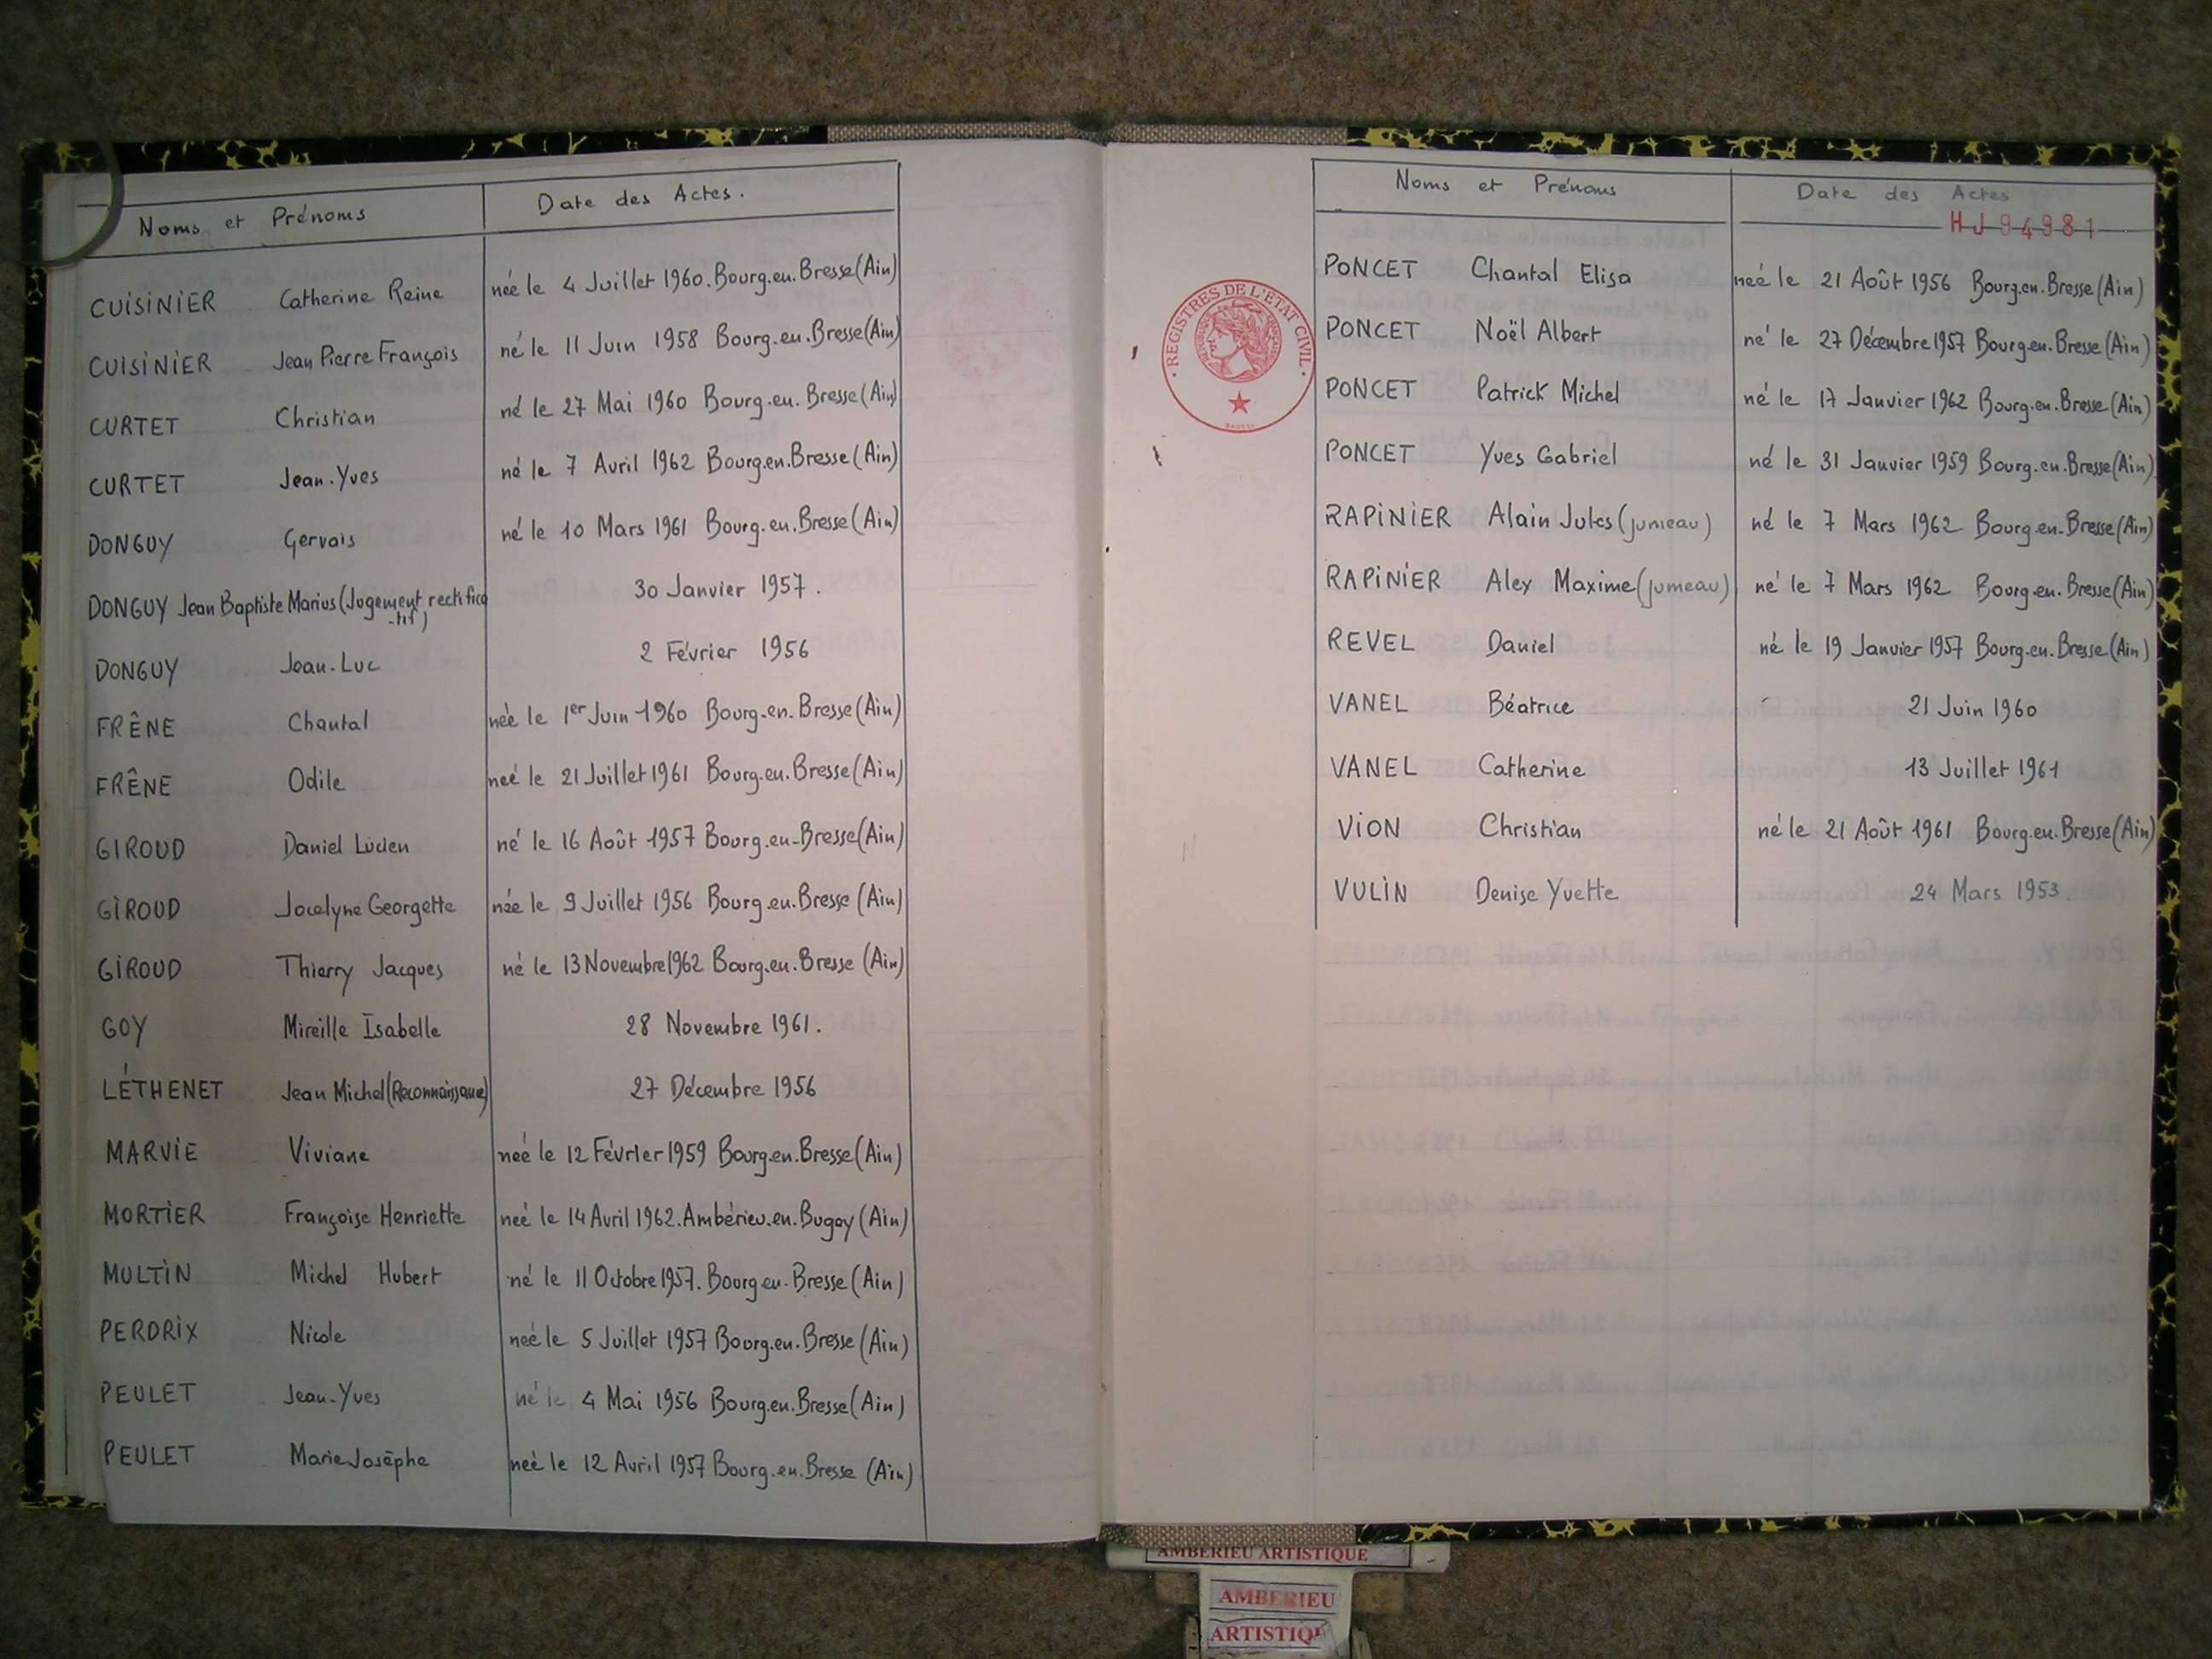 Noms et Prénoms Date des Actes.
CUISINIER Catherine Reine née le 4 Juillet 1960. Bourg.en.Bresse (Ain)
CUISINIER Jean Pierre François né le 11 Juin 1958 Bourg.en.Bresse (Ain)
CURTET Christian né le 27 Mai 1960 Bourg.en.Bresse (Ain)
CURTET Jean.Yves né le 7 Avril 1962 Bourg.en.Bresse (Ain)
DONGUY Gervais né le 10 Mars 1961 Bourg.en.Bresse (Ain)
DONGUY Jean Baptiste Marius (Jugement rectifica 30 Janvier 1957.
-tif)
DONGUY Jean-Luc 2 Février 1956
FRÊNE Chantal née le 1er Juin 1960 Bourg-en.Bresse (Ain)
FRÊNE Odile née le 21 Juillet 1961 Bourg.en.Bresse (Ain)
GIROUD Daniel Lucien né le 16 Août 1957 Bourg.en-Bresse (Ain)
GIROUD Jocelyne Georgette née le 9 Juillet 1956 Bourg.en.Bresse (Ain)
GIROUD Thierry Jacques né le 13 Novembre 1962 Bourg.en.Bresse (Ain)
GOY Mireille Isabelle 28 Novembre 1961.
LÉTHENET Jean Michel (Reconnaissance) 27 Décembre 1956
MARVIE Viviane née le 12 Février 1959 Bourg.en.Bresse (Ain)
MORTIER Françoise Henriette née le 14 Avril 1962. Ambérieu.en.Bugey (Ain)
MULTIN Michel Hubert né le 11 Octobre 1957. Bourg en.Bresse (Ain)
PERDRIX Nicole née le 5 Juillet 1957 Bourg.en.Bresse (Ain)
PEULET Jean-Yves né le 4 Mai 1956 Bourg.en.Bresse (Ain)
PEULET Marie Josèphe née le 12 Avril 1957 Bourg.en.Bresse (Ain)
Noms et Prénoms Date des Actes
HJ94981
REGISTRES DE L'ÉTAT CIVIL
PONCET Chantal Elisa née le 21 Août 1956 Bourg.en.Bresse (Ain)
PONCET Noël Albert né le 27 Décembre 1957 Bourg.en.Bresse (Ain)
PONCET Patrick Michel né le 17 Janvier 1962 Bourg.en.Bresse (Ain)
PONCET Yves Gabriel né le 31 Janvier 1959 Bourg.en.Bresse (Ain)
RAPINIER Alain Jules (jumeau) né le 7 Mars 1962 Bourg.en.Bresse (Ain)
RAPINIER Alex Maxime (jumeau) né le 7 Mars 1962 Bourg.en.Bresse (Ain)
REVEL Daniel né le 19 Janvier 1957 Bourg.en.Bresse (Ain)
VANEL Béatrice 21 Juin 1960
VANEL Catherine 13 Juillet 1961
VION Christian né le 21 Août 1961 Bourg.en.Bresse (Ain)
VULIN Denise Yvette 24 Mars 1953.
AMBERIEU ARTISTIQUE
AMBERIEU
ARTISTIQU